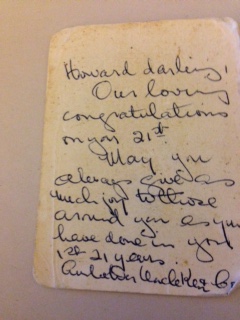 Howard darling,
Our loving
congratulations
on your 21st.
May you
always give as
much joy to those
around you as you
have done in your
1st 21 years.